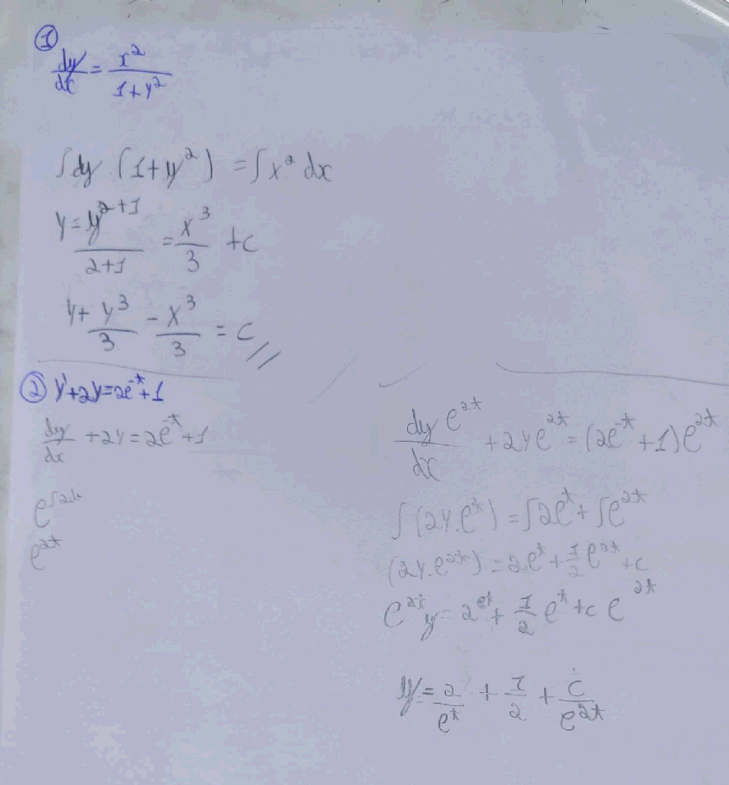 ①
dy/dx = x²/(1+y²)
∫dy (1+y²) = ∫x² dx
y = y²⁺¹/(2+1) = x³/3 + c
y + y³/3 - x³/3 = c //
② y'+2y=2e⁻ᵗ+1
dy/dx + 2y = 2e⁻ᵗ+1
e^∫2dt
e²ᵗ
dy e²ᵗ/dx + 2ye²ᵗ = (2e⁻ᵗ+1)e²ᵗ
∫(2y.e²ᵗ) = ∫2eᵗ + ∫e²ᵗ
(2y.e²ᵗ) = 2eᵗ + 1/2 e²ᵗ + c
e²ᵗ y = 2eᵗ + 1/2 eᵗ + c e²ᵗ
y = 2/eᵗ + 1/2 + c/e²ᵗ